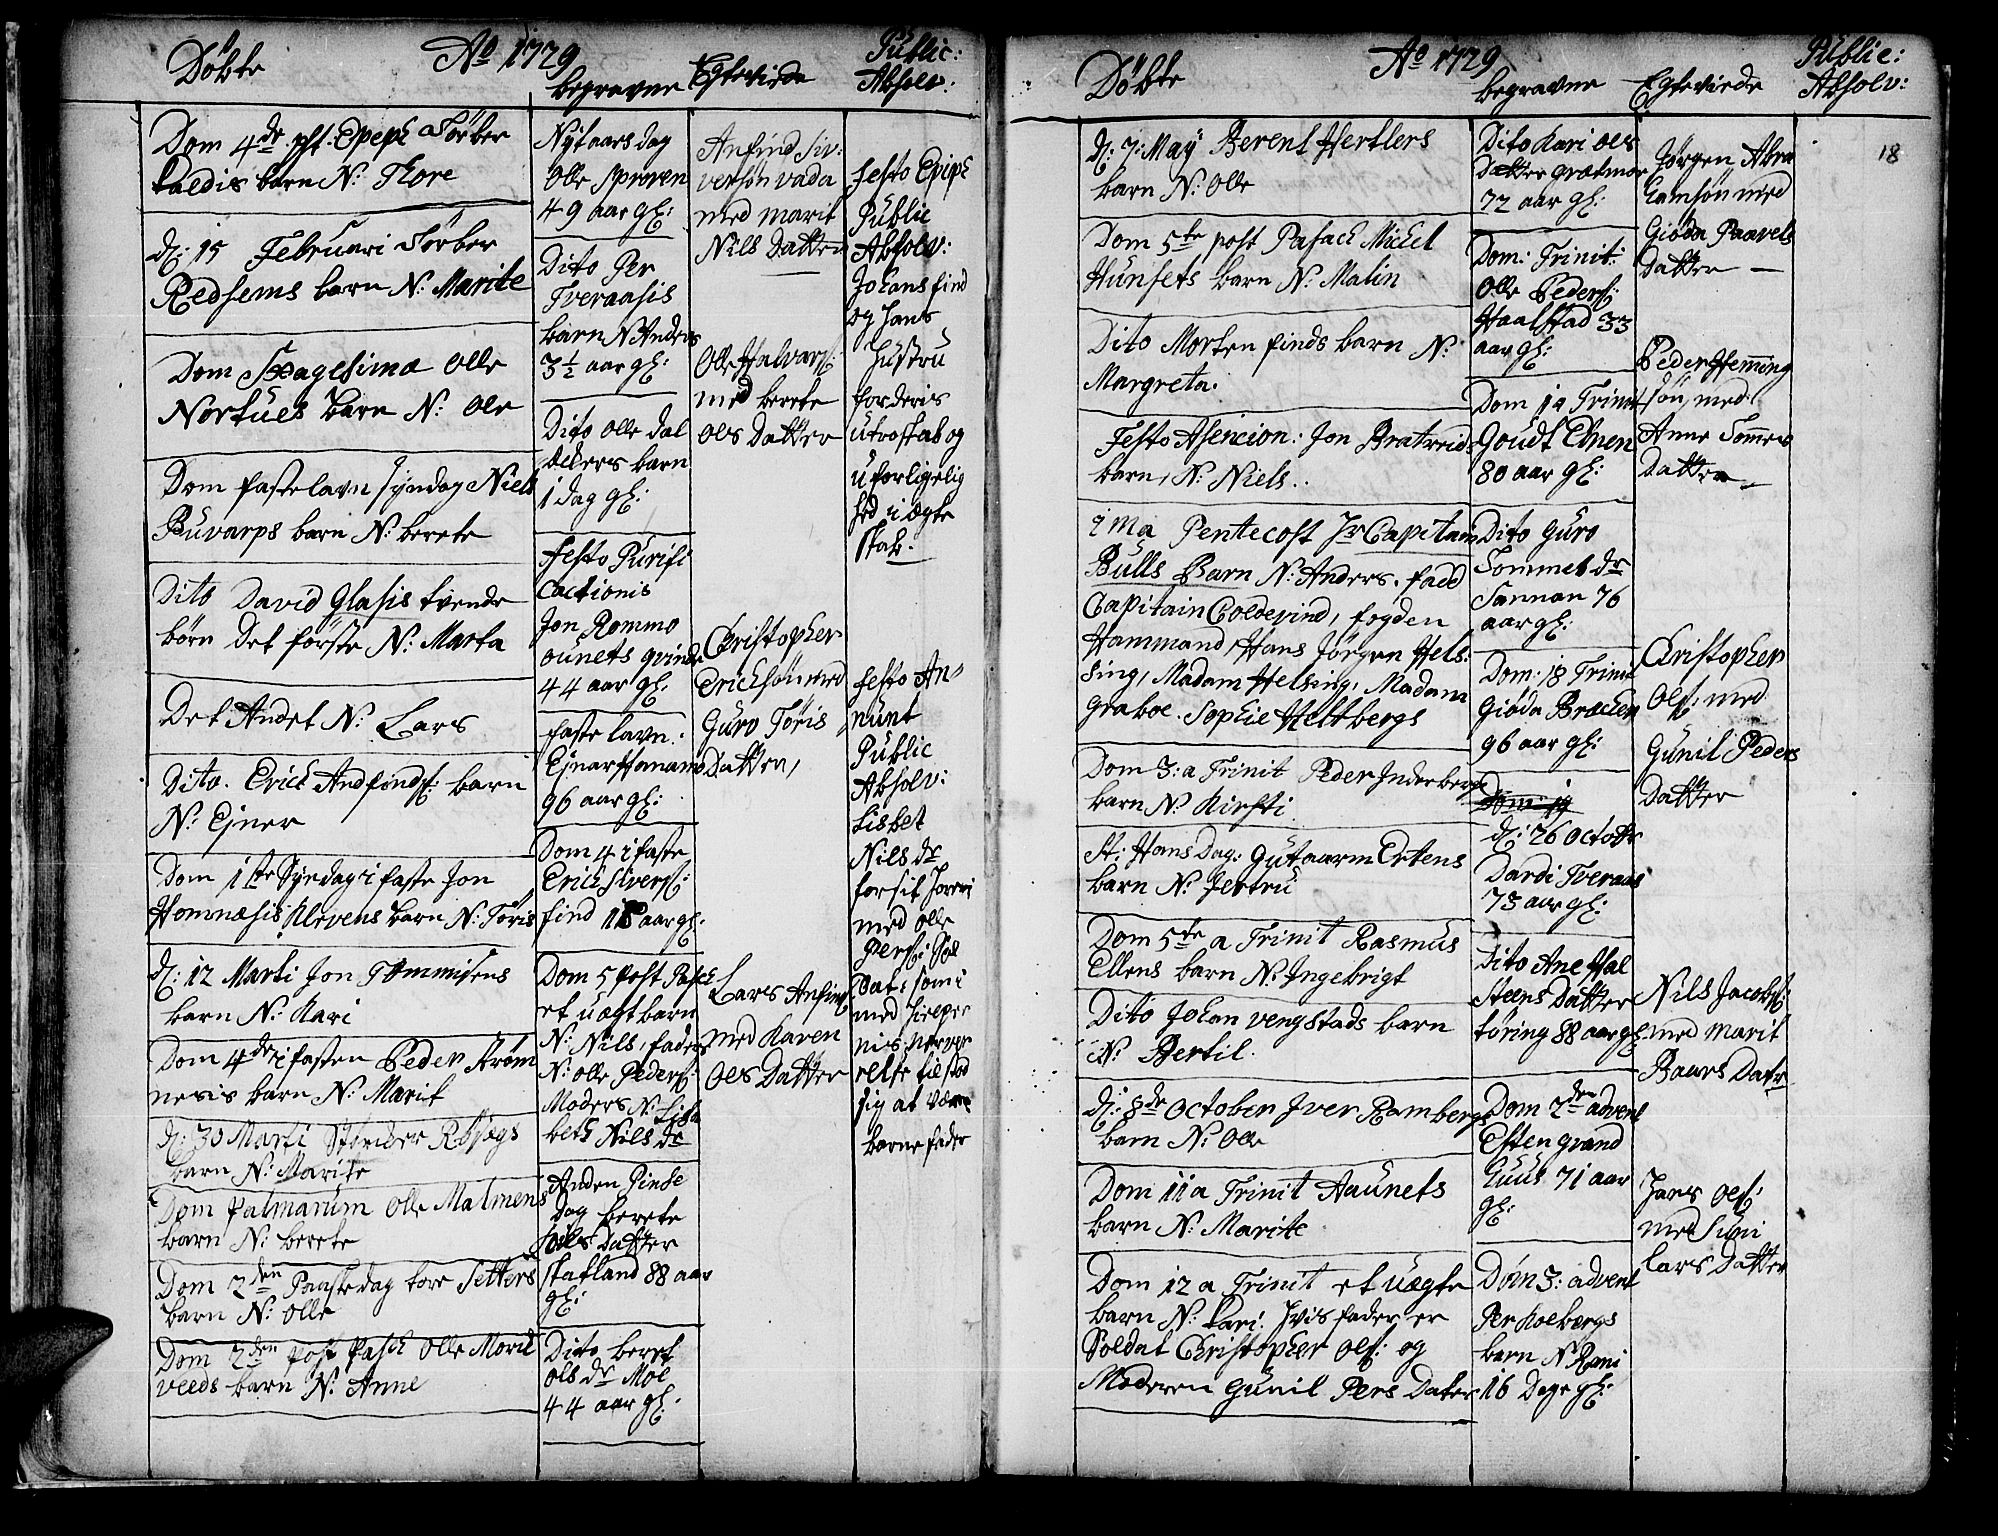 Döbte
Ao 1729
begravne
Egteviede
Public:
Absolv:
Dom 4de pst: Epeph Torber
barn N: Thore
dj: 15 Februari Torber
Redsems barn N: Marite
Dom Sexagesimæ Olle
Nortues barn N: Ole
Dom fastelavn syndag Niels
Buvarps barn N: berete
Dito David Glasis tvende
børn Det første N: Marta
Det Andet N: Lars
Dito. Erich Andfinds: barn
N: Ejner
Dom 1ste Syndag i faste Jon
Homnæsis Klevens barn N: Töris
dj: 12 Marti Jon Tommisens
barn N: Kari
Dom 4de i fasten Peder Ström
nesis barn N: Marit
dj: 30 Marti
barn N: Marite
Dom Palmarum Olle Malmens
barn N: berete
Dom 2den Paaskedag tore Setters
barn N: Olle
Dom 2den post Pasch Olle Moril
veeds barn N: Anne
Nytaarsdag
Olle Sprøven
49 aar gl:
Dito Per
Tveraasis
barn N: Anders
3½ aar gl:
Dito Olle dal
barn
1 dag gl:
Festo Purifi
cactionis
Jon Rommo
ounets qvinde
44 aar gl:
fastelavn:
Ejnar Homano
96 aar gl:
Dom 4 i faste
Erich Sivers:
find 18 aar gl:
Dom 5 post Pasch
et uægt barn
N: Nils, faders
N: Olle Peders:
Moders N: Lisa
beth Nils dr
Anden Pinse
Dag berete
Datter
skafland 88 aar
gl:
Dito beret
Ols dr Moe
44 aar gl:
Anfind Siv:
versön vada
med marit
Nils Datter
Olle Halvars:
med berete
Ols Datter
Christopher
Ericksön med
Guro Töris
Datter,
Lars Anfins:
med Karen
Ols Datter
festo Epiph
Public
Absolv:
Johans find
og hans
hustru
for deris
utroskab og
uforligelig
hed i ægte
skab.
festo An=
nunt
Public
Absolv:
Lisbet
Nils dr
for sit horeri
med Olle
Pers: Sol
dat: som i
med
nis: nerver
relse tilstod
sig at være
barnefader
Döbte
Ao 1729
begravne
Egteviede
Public:
Absolv:
18
dj: 7: Maÿ Berent Hertlers
barn N: Olle
Dom 5te post Pasach Mickel
Hunsets barn N: Malin
Dito Morten finds barn N:
Margreta.
Festo Asencion: Jon Bratreids
barn, N: Niels..
ima Pentecost Hr Capitain
Bulls Barn N: Anders, fadd
Capitain Coldevind, fogden
Hammand, Hans Jörgen Hels:
sing, Madam Helsing, Madam
Graboe. Sophie Heltbergs
Dom 3: a Trinit Peder Inderbergs
barn N: Kirsti
St: Hans Dag: Gutaarm Ertens
barn N: Jertru
Dom 5te a Trinit Rasmus
Ellens barn N: Ingebrigt
Dito Johan vengstads barn
N: Bertil.
dj: 8de October Iver Rambergs
barn N: Olle
Dom 11 a Trinit Haunets
barn N: Marite
Dom 12 a Trinit et uægte
barn N: Kari. Hvis fader er
Soldat Christopher Ols: og
Moderen Gunil Pers Dater
Dito Kari Ols
Datter grætmoe
72 aar gl:
Dom: Trinit:
Olle Peders:
Haalstad 33
aar gl:
Dom 1 a Trinit
Goudt Elnen
80 aar gl:
Dito Guro
Sommet dr
Sannan 76
aar gl:
Dom: 18 Trinit
Giöda Bræchen
96 aar gl:
Dom: 19
dj: 26 Octobr
Dardi Tveraas
73 aar gl:
Dito Ane Hal
Steens Datter
töring 88 aar gl:
Dom 2den advent
Esten grand
huus 71 aar
gl:
Dom 3: advent
Per Kolbergs
barn N: Rani
16 Dage gl:
Jörgen Abra
hamsön med
Giöda Paavels
Datter
Peder Heming
sön, med
Anne Sommes
Datter
Christopher
Ols: med
Gunil Peders
Datter
Nils Jacobs:
med Marit
Baars Dater
Hans Ols:
med Suni
Lars Datter